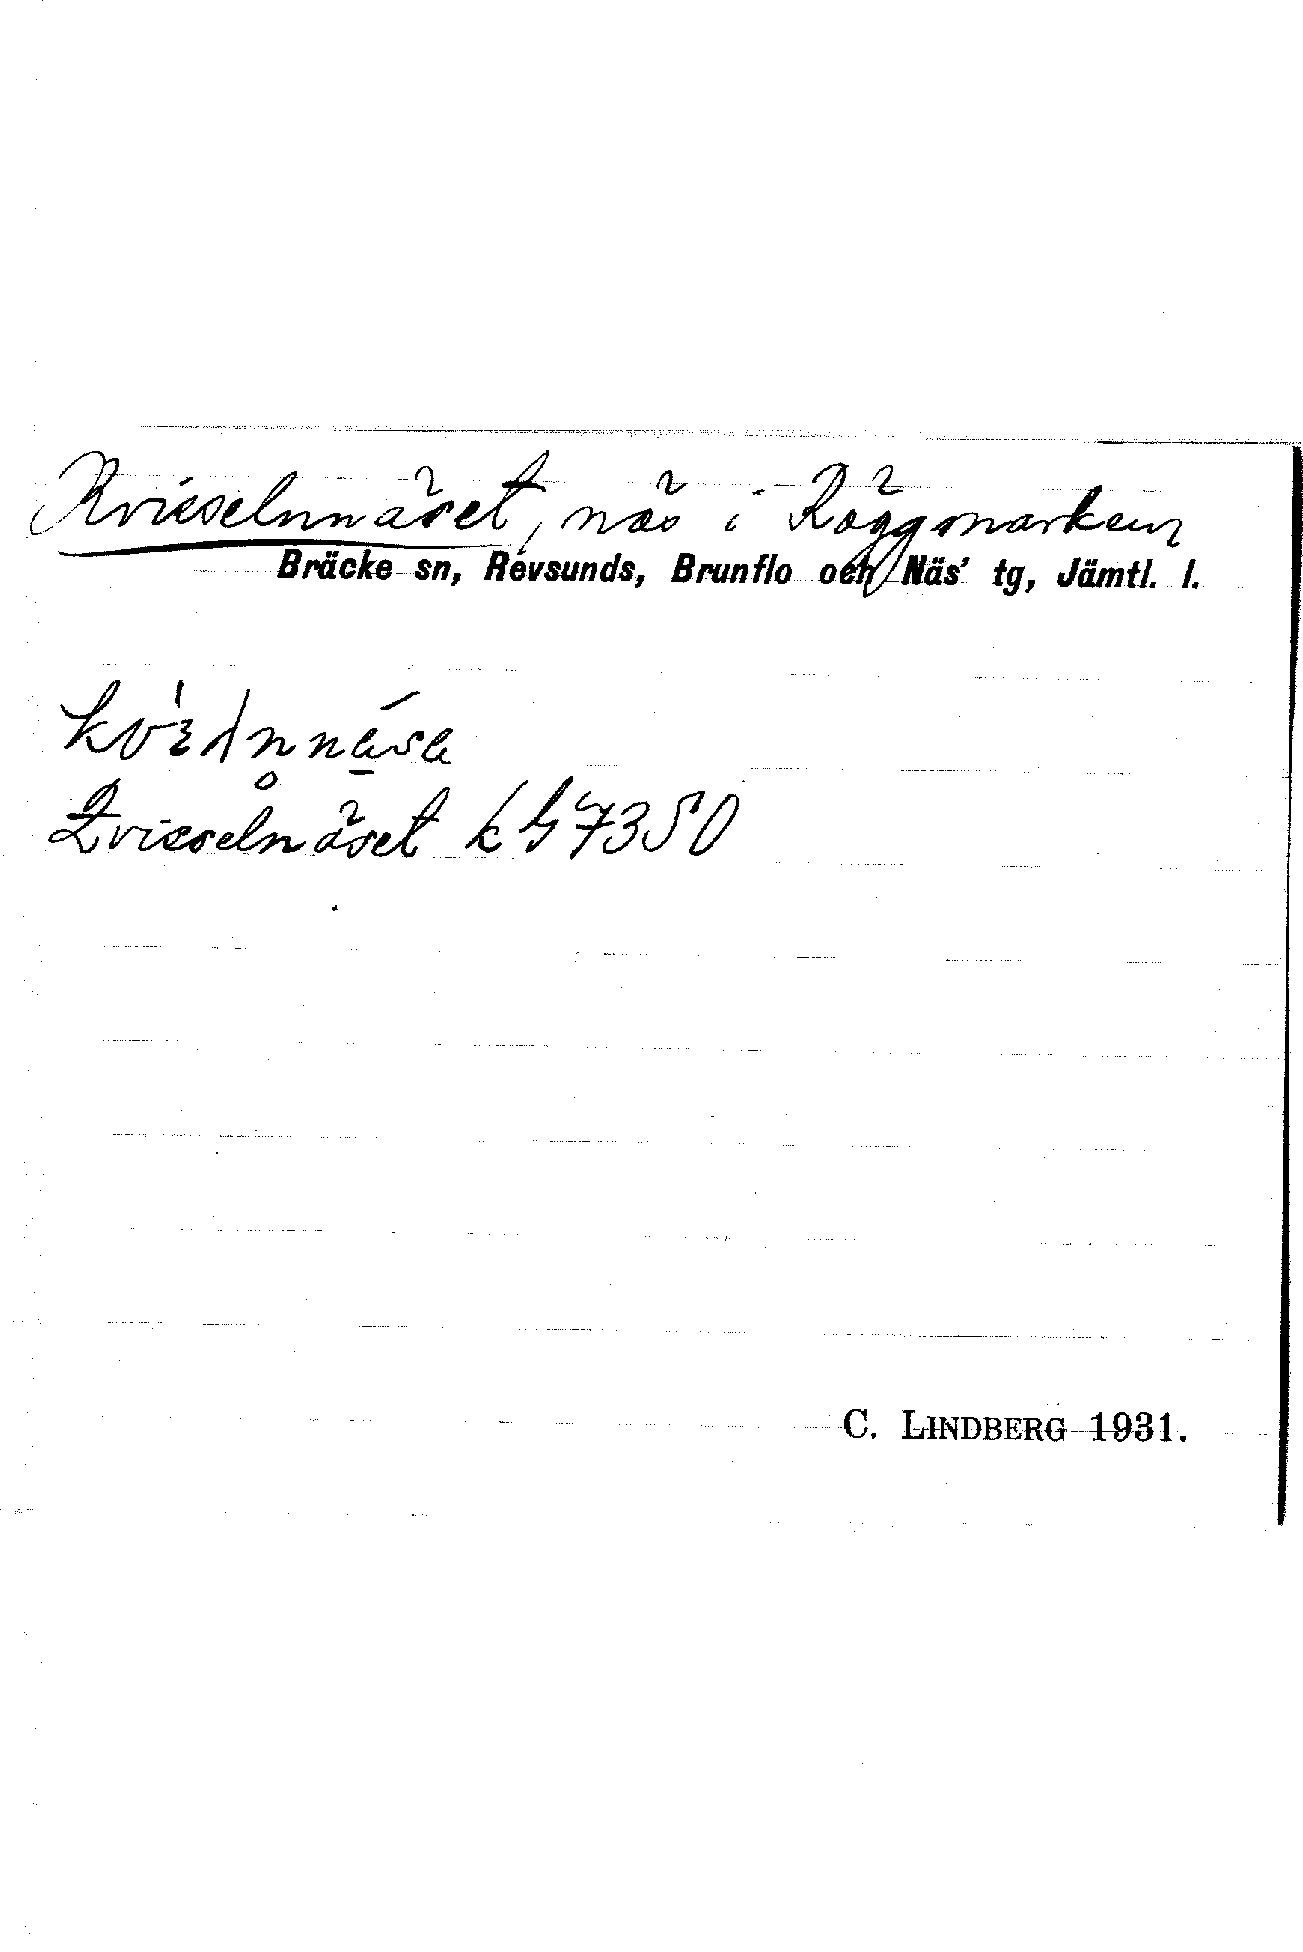 Kvisselnnäset, näs i Räggmarken
Bräcke sn, Revsunds, Brunflo och Näs' tg, Jämtl. l.
Qvisselnäset kb 7350
C. LINDBERG 1931.